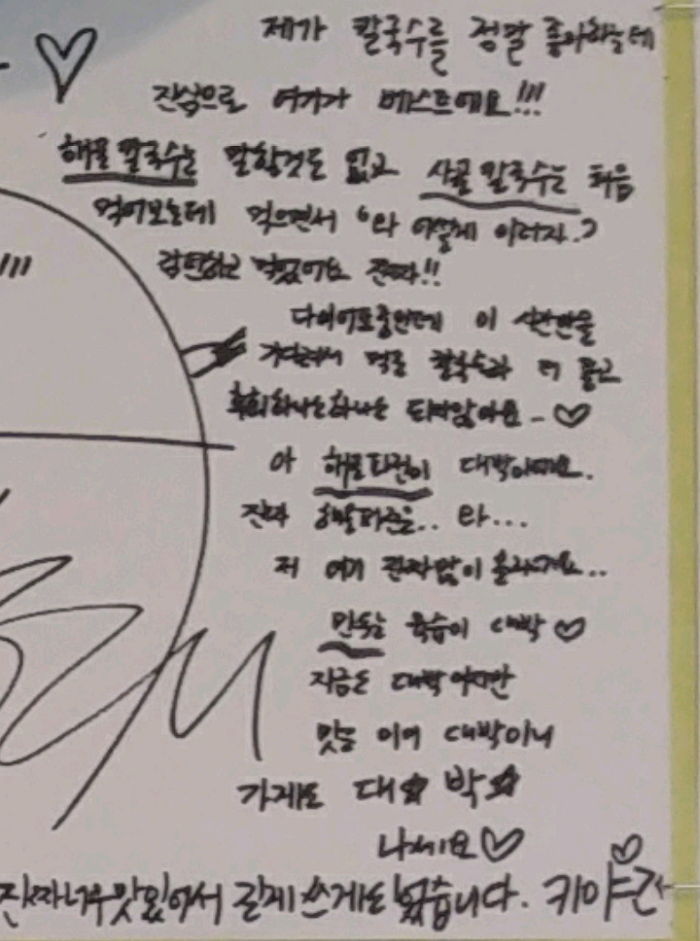 제가 칼국수를 정말 좋아하는데
진심으로 여기가 베스트예요!!!
해물 칼국수는 말할것도 없고 사골 칼국수는 처음
먹어보는데 먹으면서 "와 어떻게 이러지.?
감탄하고 먹었어요 진짜!!
다이어트중인데 이
먹은 칼국수라 더 좋고
후회하나는하나는 되지않아요 - ♡
아 해물파전이 대박이에요.
진짜 와...
저 여기 진짜 많이 올라구요..
만두는 육즙이 대박 ♡
지금도 대박이지만
맛도 이미 대박이니
가게도 대☆ 박☆
나세요 ♡
진짜너무맛있어서 길게 쓰게되었습니다.